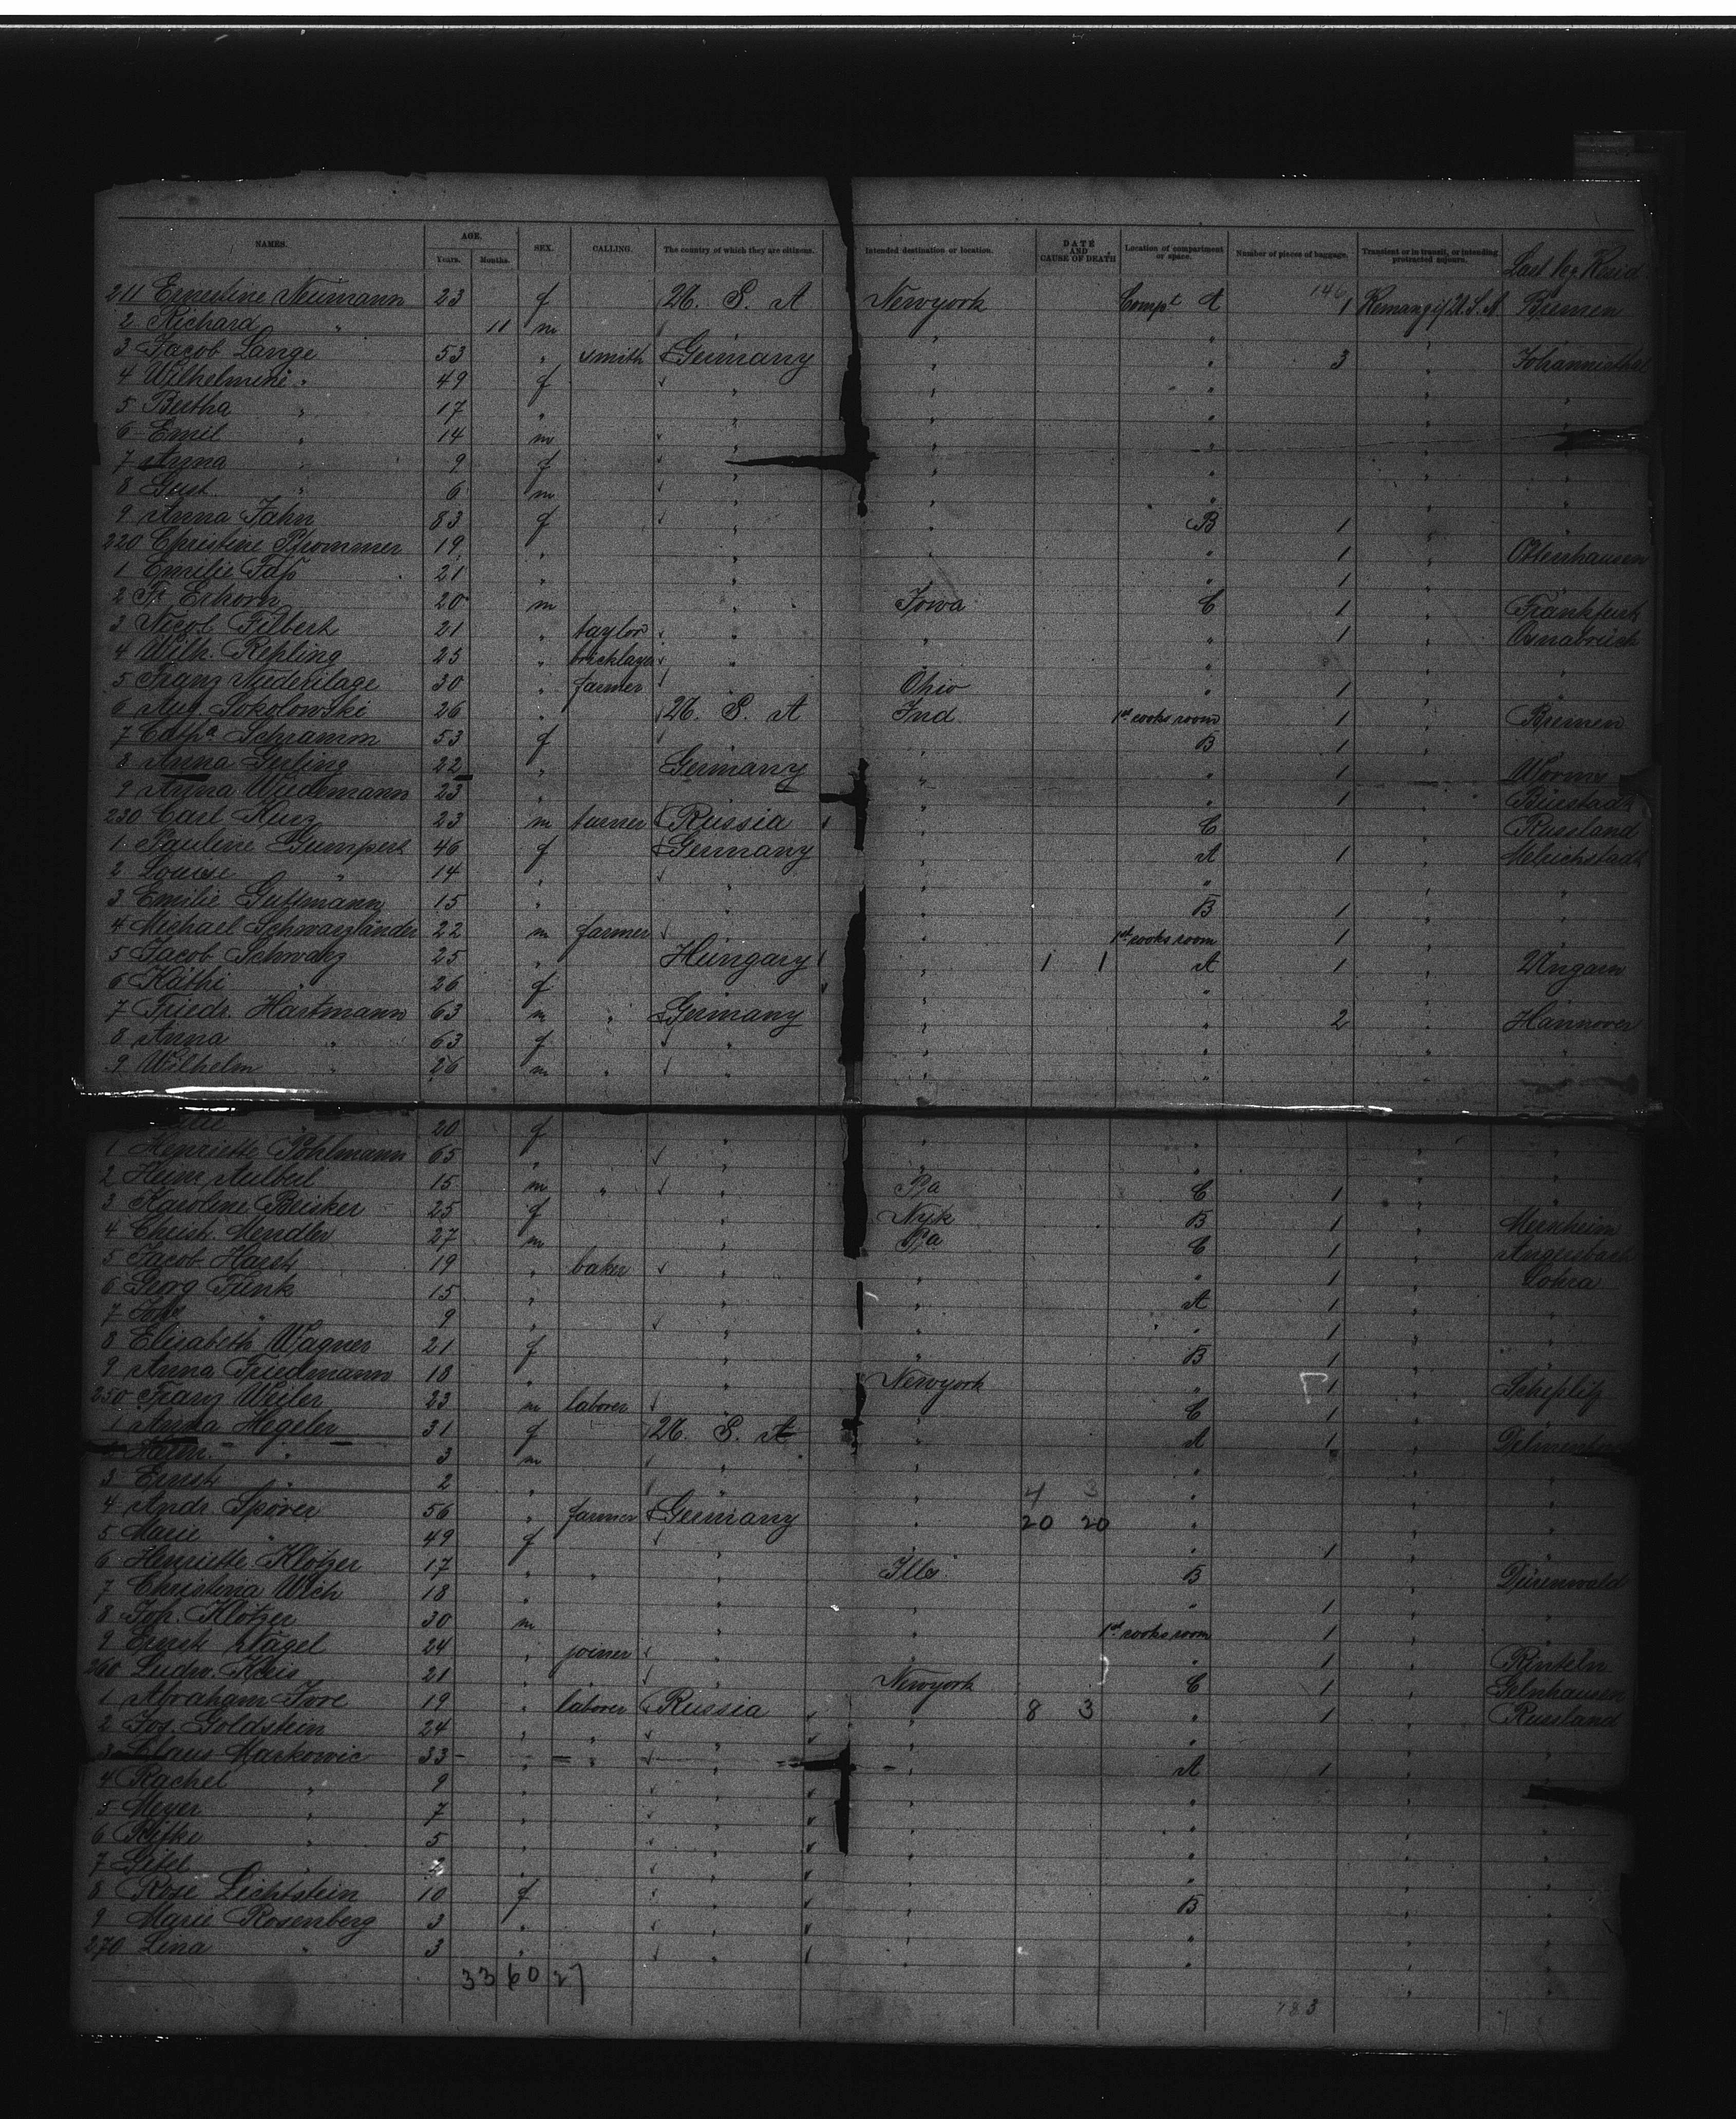 NAMES. AGE. Years. Months. SEX. CALLING. The country of which they are citizens. Intended destination or location. DATE AND CAUSE OF DEATH Location of compartment or space. Number of pieces of baggage. Transient or in transit, or intending protracted sojourn. Last Leg Resid
146
211 Ernestine Neumann 23 f U. S. A Newyork Compt A 1 Bremen
2 Richard " 11 m " " " "
3 Jacob Lange 53 " smith Germany " " 3 " Johannisthal
4 Wilhelmine " 49 f " " " " "
5 Bertha " 17 " " " " " "
6 Emil " 14 m " " " " "
7 Anna " 9 f " " " " "
8 Gust " 6 m " " " " "
9 Anna Jahn 83 f " " B 1 " "
220 Christine Pfrommer 19 " " " " 1 " Ottenhausen
1 Emilie Faß 21 " " " " 1 " "
2 Fr Erhorn 20 m " Iowa C 1 " Frankfurt
3 Filbert 21 " taylor " " " 1 " Osnabrück
4 Wilh. Repling 25 " bricklayer " " " " "
5 Franz Niederilage 30 " farmer " Ohio " 1 " "
6 Aug. Sokolowski 26 " U. S. A Ind 1st cooks room 1 " Bremen
7 Catha Schramm 53 f " " B 1 " "
8 Anna Gerling 22 " Germany " " 1 " Worms
9 Anna Wiedemann 23 " " " " 1 "
230 Carl Kurz 23 m turner Russia " C " Russland
1 Pauline Gumpert 46 f Germany " A 1 "
2 Louise " 14 " " " " " "
3 Emilie Guttmann 15 " " " B 1 " "
4 Michael Schwarzländer 22 m farmer " 1st cooks room 1 " "
5 Jacob Schwarz 25 " Hungary " 1 1 A 1 " Ungarn
6 Käthi " 26 f " " " " "
7 Friedr. Hartmann 63 m " Germany " " 2 " Hannover
8 Anna " 63 f " " " " "
9 Wilhelm " 26 m " " " " " "
" 20 f " " " " "
1 Henriette Pöhlmann 65 " " " " " "
2 Heinr Aulbeil 15 m " " Pa C 1 " "
3 Karoline Beisker 25 f " Nyk B 1 "
4 Christ. Mendler 27 m " Pa C 1 " Angersbach
5 Jacob Harst 19 " baker " " " 1 " Lohra
6 Georg Funk 15 " " " A 1 " "
7 " 9 " " " " 1 " "
8 Elisabeth Wagner 21 f " " B 1 " "
9 Anna Friedmann 18 " " Newyork " 1 " Scheßlitz
250 Franz Weiler 23 m laborer " " C 1 " "
1 Anna Hegeler 31 f U. S. A " A 1 "
2 " 3 m " " " " "
3 Ernst " 2 " " " 4 3 " " "
4 Andr. Spörer 56 " farmer Germany " 20 20 " " "
5 Marie " 49 f " " " 1 " "
6 Henriette Klötzer 17 " " " Ills B " Dürenwald
7 Christina Wich 18 " " " " 1 " "
8 Joh. Klötzer 30 m " " 1st cooks room 1 " "
9 Ernst Nagel 24 " joiner " " " 1 " Rinteln
260 Ludw. 21 " " Newyork C 1 " Gelnhausen
1 Abraham 19 " laborer Russia " 8 3 " 1 " Russland
2 Jos. Goldstein 24 " " " " " " "
3 Markowic 33 " " " " A 1 " "
4 Rachel " 9 " " " " " "
5 Meyer " 7 " " " " " "
6 Rifke " 5 " " " " " "
7 Gitel " " " " " " "
8 Rose Lichtstein 10 f " " B " "
9 Marie Rosenberg 3 " " " " " "
270 Lina " 3 " " " " " "
33 60 27
183